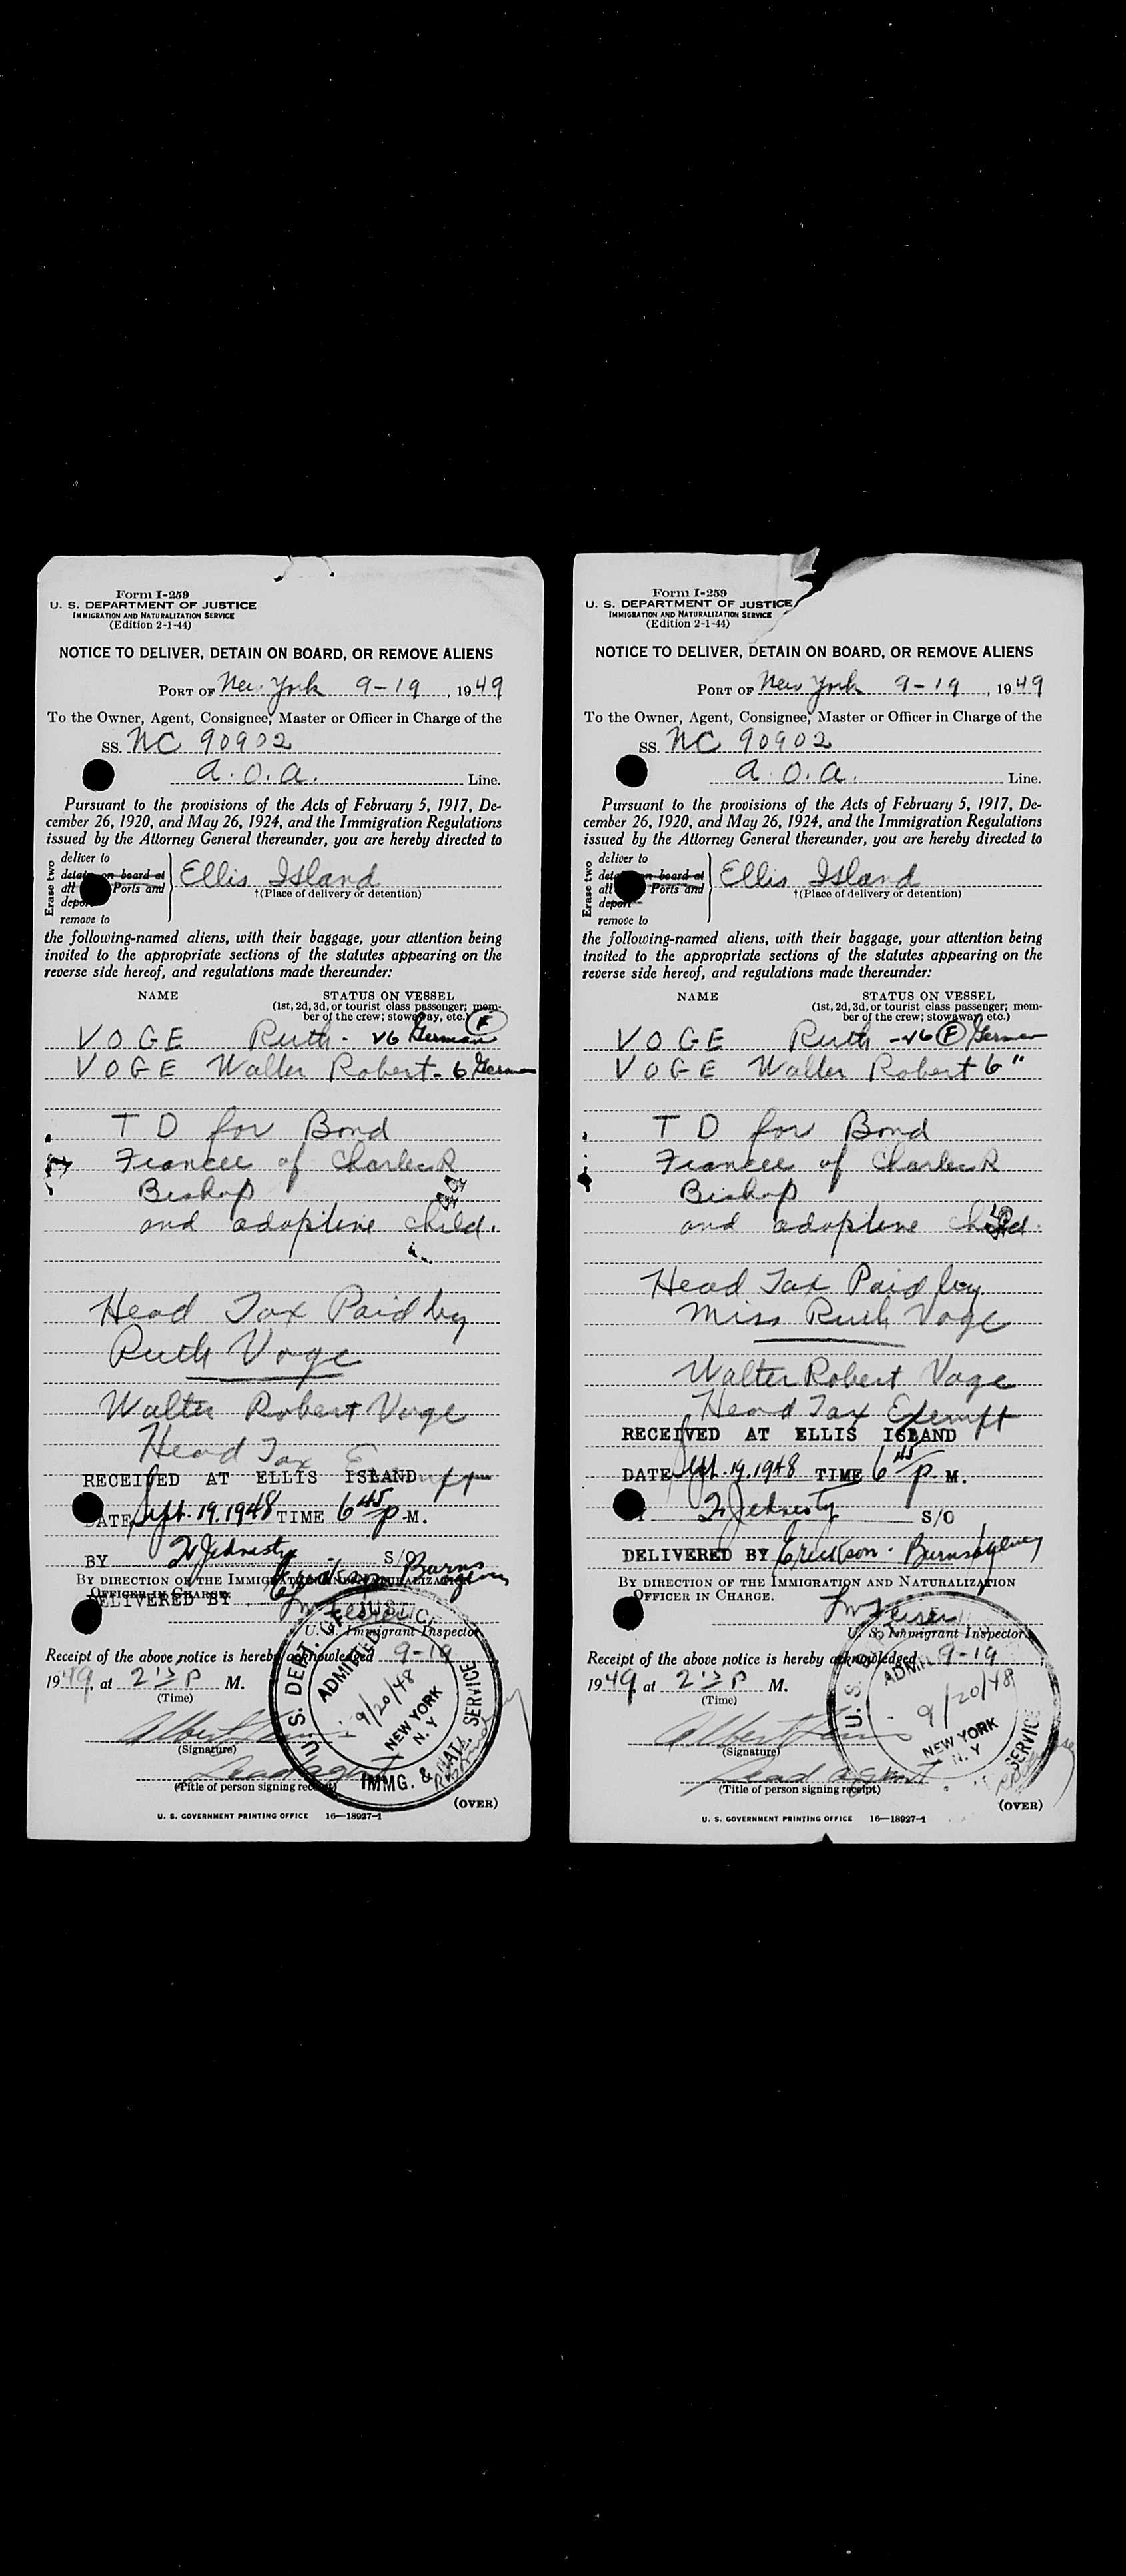 Form I-259
U. S. DEPARTMENT OF JUSTICE
IMMIGRATION AND NATURALIZATION SERVICE
(Edition 2-1-44)
NOTICE TO DELIVER, DETAIN ON BOARD, OR REMOVE ALIENS
PORT OF New York 9-19, 1949
To the Owner, Agent, Consignee, Master or Officer in Charge of the
SS. NC 90902
A.O.A. Line.
Pursuant to the provisions of the Acts of February 5, 1917, De-
cember 26, 1920, and May 26, 1924, and the Immigration Regulations
issued by the Attorney General thereunder, you are hereby directed to
Erase two
deliver to
detain on board at
all Ports and
deport
remove to
Ellis Island
†(Place of delivery or detention)
the following-named aliens, with their baggage, your attention being
invited to the appropriate sections of the statutes appearing on the
reverse side hereof, and regulations made thereunder:
NAME STATUS ON VESSEL
(1st, 2d, 3d, or tourist class passenger; mem-
ber of the crew; stowaway, etc.) F
VOGE Ruth - 26 German
VOGE Walter Robert - 6 German
T D for Bond
Fiancee of Charles R
Bishop
and adoptive child.
Head Tax Paid by
Ruth Voge
Walter Robert Voge
Head Tax Exempt
RECEIVED AT ELLIS ISLAND
DATE Sept. 19, 1948 TIME 6 45 P.M.
BY S/O
BY DIRECTION OF THE IMMIGRATION AND NATURALIZATION
OFFICER IN CHARGE.
DELIVERED BY Erickson Burns Agency
U. S. Immigrant Inspector
Receipt of the above notice is hereby acknowledged 9-19
1949, at P M.
(Time)
Albert
(Signature)
Lead agent
(Title of person signing receipt)
U.S. DEPT. OF JUSTICE
ADMITTED
9/20/48
NEW YORK
N.Y
IMMG. & NATZ. SERVICE
(OVER)
U. S. GOVERNMENT PRINTING OFFICE 16—18927-1
Form I-259
U. S. DEPARTMENT OF JUSTICE
IMMIGRATION AND NATURALIZATION SERVICE
(Edition 2-1-44)
NOTICE TO DELIVER, DETAIN ON BOARD, OR REMOVE ALIENS
PORT OF New York 9-19, 1949
To the Owner, Agent, Consignee, Master or Officer in Charge of the
SS. NC 90902
A.O.A. Line.
Pursuant to the provisions of the Acts of February 5, 1917, De-
cember 26, 1920, and May 26, 1924, and the Immigration Regulations
issued by the Attorney General thereunder, you are hereby directed to
Erase two
deliver to
detain on board at
all Ports and
deport
remove to
Ellis Island
†(Place of delivery or detention)
the following-named aliens, with their baggage, your attention being
invited to the appropriate sections of the statutes appearing on the
reverse side hereof, and regulations made thereunder:
NAME STATUS ON VESSEL
(1st, 2d, 3d, or tourist class passenger; mem-
ber of the crew; stowaway, etc.)
VOGE Ruth - 26 F German
VOGE Walter Robert 6 "
T D for Bond
Fiancee of Charles R
Bishop
and adoptive child.
Head Tax Paid by
Miss Ruth Voge
Walter Robert Voge
Head Tax Exempt
RECEIVED AT ELLIS ISLAND
DATE Sept. 19, 1948 TIME 6 45 P.M.
S/O
DELIVERED BY Erickson - Burns Agency
BY DIRECTION OF THE IMMIGRATION AND NATURALIZATION
OFFICER IN CHARGE.
U. S. Immigrant Inspector.
Receipt of the above notice is hereby acknowledged 9-19
1949, at P M.
(Time)
Albert
(Signature)
Lead agent
(Title of person signing receipt)
U.S.
9/20/48
NEW YORK
N.Y
SERVICE
(OVER)
U. S. GOVERNMENT PRINTING OFFICE 16—18927-1